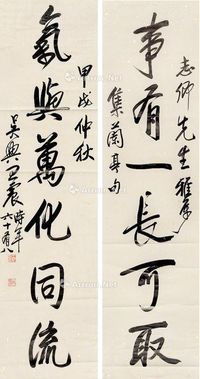 志仰先生雅属
事有一长可取
集兰亭句
氣與萬化同流
甲戌仲秋
吴興王震時年
六十有八